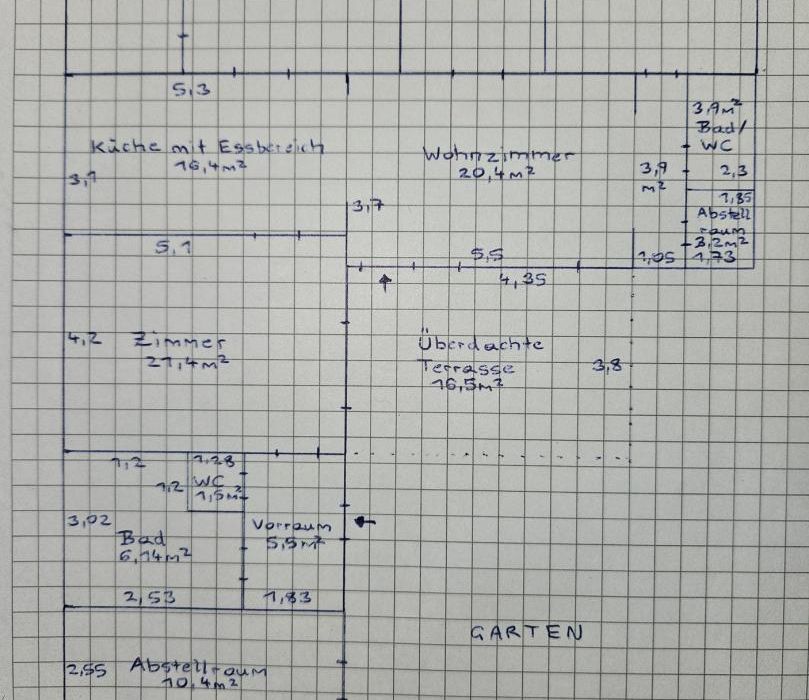 5,3
Küche mit Essbereich
16,4m²
3,1
Wohnzimmer
20,4m²
3,7
3,9
m²
3,9m²
Bad/
WC
2,3
1,85
Abstell
raum
3,2m²
1,73
1,05
5,5
5,1
4,35
4,2
Zimmer
21,4m²
Überdachte
Terrasse
16,5m²
3,8
1,2
1,28
1,2
WC
1,5m²
3,02
Bad
6,14m²
Vorraum
5,5m²
2,53
1,83
GARTEN
2,55
Abstellraum
10,4m²